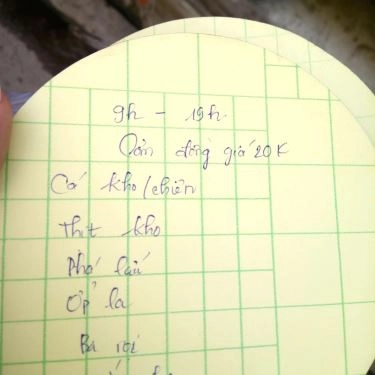 9h - 19h.
Cơm đồng giá 20K
Cá kho/chiên
Thịt kho
Phá lấu
Ốp la
Ba rọi